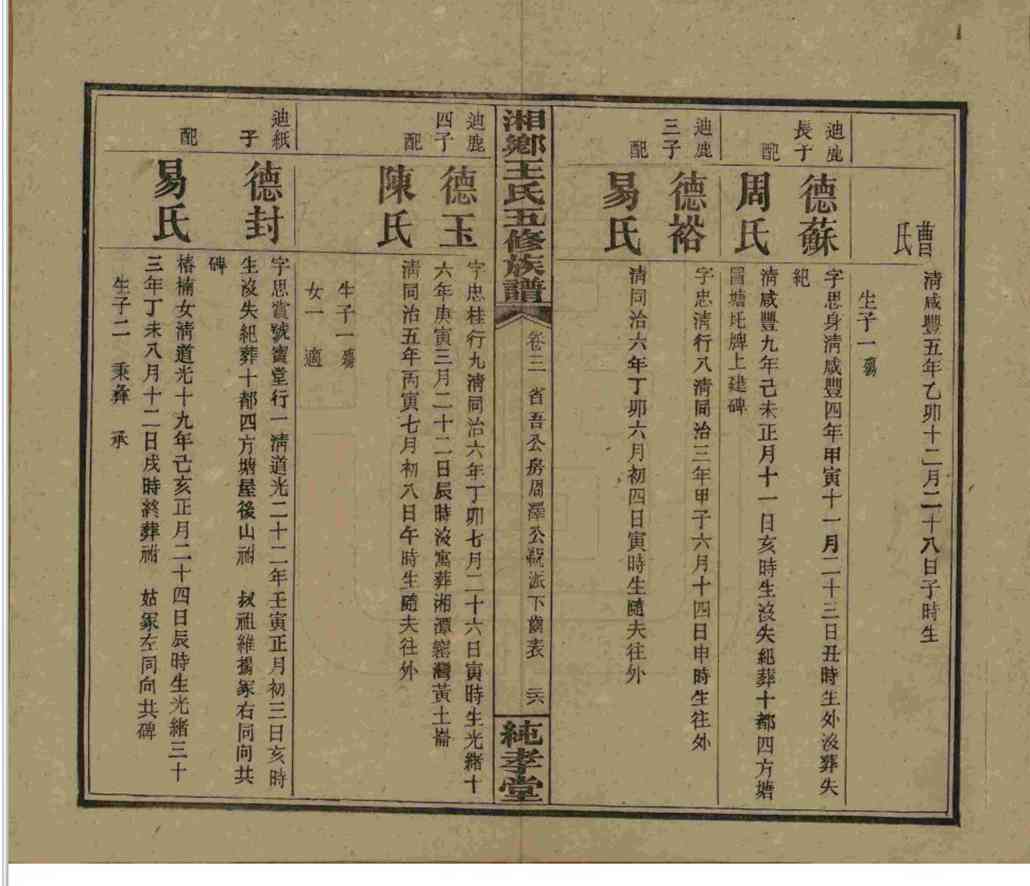 曹氏
清咸豐五年乙卯十二月二十八日子時生
生子一殤
迪鹿
長子
德蘇
字思身清咸豐四年甲寅十一月二十三日丑時生外沒葬失
紀
配
周氏
清咸豐九年己未正月十一日亥時生沒失紀葬十都四方塘
冒塘坵牌上建碑
迪鹿
三子
德裕
字忠清行八清同治三年甲子六月十四日申時生往外
配
易氏
清同治六年丁卯六月初四日寅時生隨夫往外
湘鄉王氏五修族譜
卷三
省吾公房周澤公 派下齒表
三六
純孝堂
迪鹿
四子
德玉
字忠桂行九清同治六年丁卯七月二十六日寅時生光緒十
六年庚寅三月二十二日辰時沒寓葬湘潭窰灣黃土崙
配
陳氏
清同治五年丙寅七月初八日午時生隨夫往外
生子一殤
女一 適
迪紙
子
德封
字思賞號寶堂行一清道光二十二年壬寅正月初三日亥時
生沒失紀葬十都四方塘屋後山祔 叔祖維揚冢右同向共
碑
配
易氏
椿楠女清道光十九年己亥正月二十四日辰時生光緒三十
三年丁未八月十二日戌時終葬祔 姑冢左同向共碑
生子二 秉彝 承